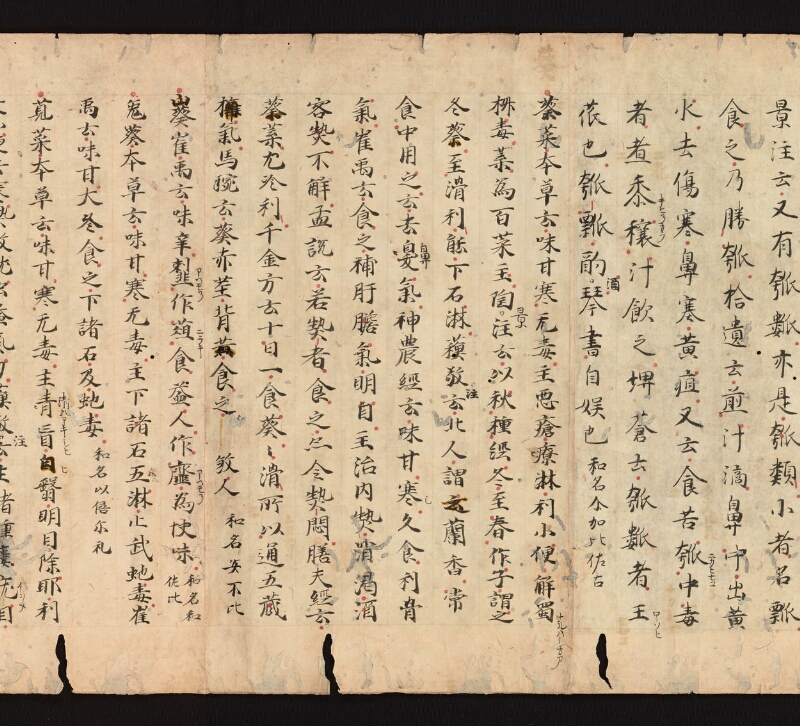 景注云又有瓠𤬛亦是瓠類小者名瓢
食之乃勝瓠拾遺云煎汁滴鼻中出黃
水去傷寒鼻塞黃疸又云食苦瓠中毒
者煮黍穰汁飲之埤蒼云瓠𤬛者王
莀也瓠瓢酌酒琴書自娯也 和名
葵菜本草云味甘寒无毒主惡瘡療淋利小便解蜀
椒毒葉為百菜主陶景注云以秋種經冬至春作子謂之
冬葵至滑利能下石淋蘇敬注云北人謂蘭香常
食中用之云去臭氣神農經云味甘寒久食利骨
氣崔禹云食之補肝膽氣明目主治内熱消渴酒
客熱不解孟詵云若熱者食之亦令熱悶膳夫經云
葵菜尤冷利千金方云十日一食葵々滑所以通五藏
擁氣馬琬云葵赤莖背黃食之 煞人 和名
葵崔禹云味辛作葅食益人作虀為快味 和名和佐比
兔葵本草云味甘寒无毒主下諸石五淋止武虵毒崔
禹云味甘大冬食之下諸石及虵毒 和名以倍尓礼
莧菜本草云味甘寒无毒主青盲白翳明目除耶利